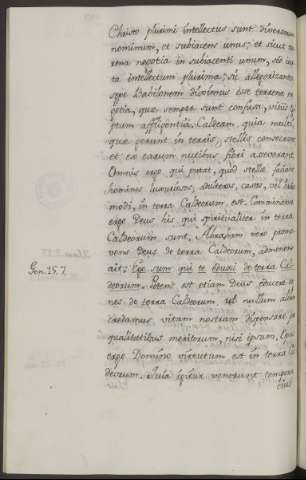 Christo plurimi intellectus sunt diversorum
nominum, et subiacens unus; et sicut ter
rena negotia in subiacenti unum, sed iux
ta intellectum plurima; sic allegorizantes
sepe Babilonem diximus esse terrena ne
gotia, que semper sunt confusa, vitiis
ptum affligentia, Caldeam, quia multi
que gerunt in terris, stellis consecrant
et ex earum nutibus fieri asseverant.
Omnis ergo qui putat, quod stelle faciant
homines luxuriosos, adulteros, castos, vel
modi, in terra Caldeorum est. Comminatur
ergo Deus his qui spiritualiter in terra
Caldeorum sunt, Abraham vero promo
vens Deus de terra Caldeorum, admonens
ait: Ego sum qui te eduxi de terra Cal
Gen. 15. 7.
deorum. Potens est etiam Deus educere om
nes de terra Caldeorum, ut nullum alium
credamus vitam nostram dispensare pro
qualitatibus meritorum, nisi ipsum. Ipsius
ergo Domini virtutum est in terra Cal
deorum. Quia igitur venerunt tempora